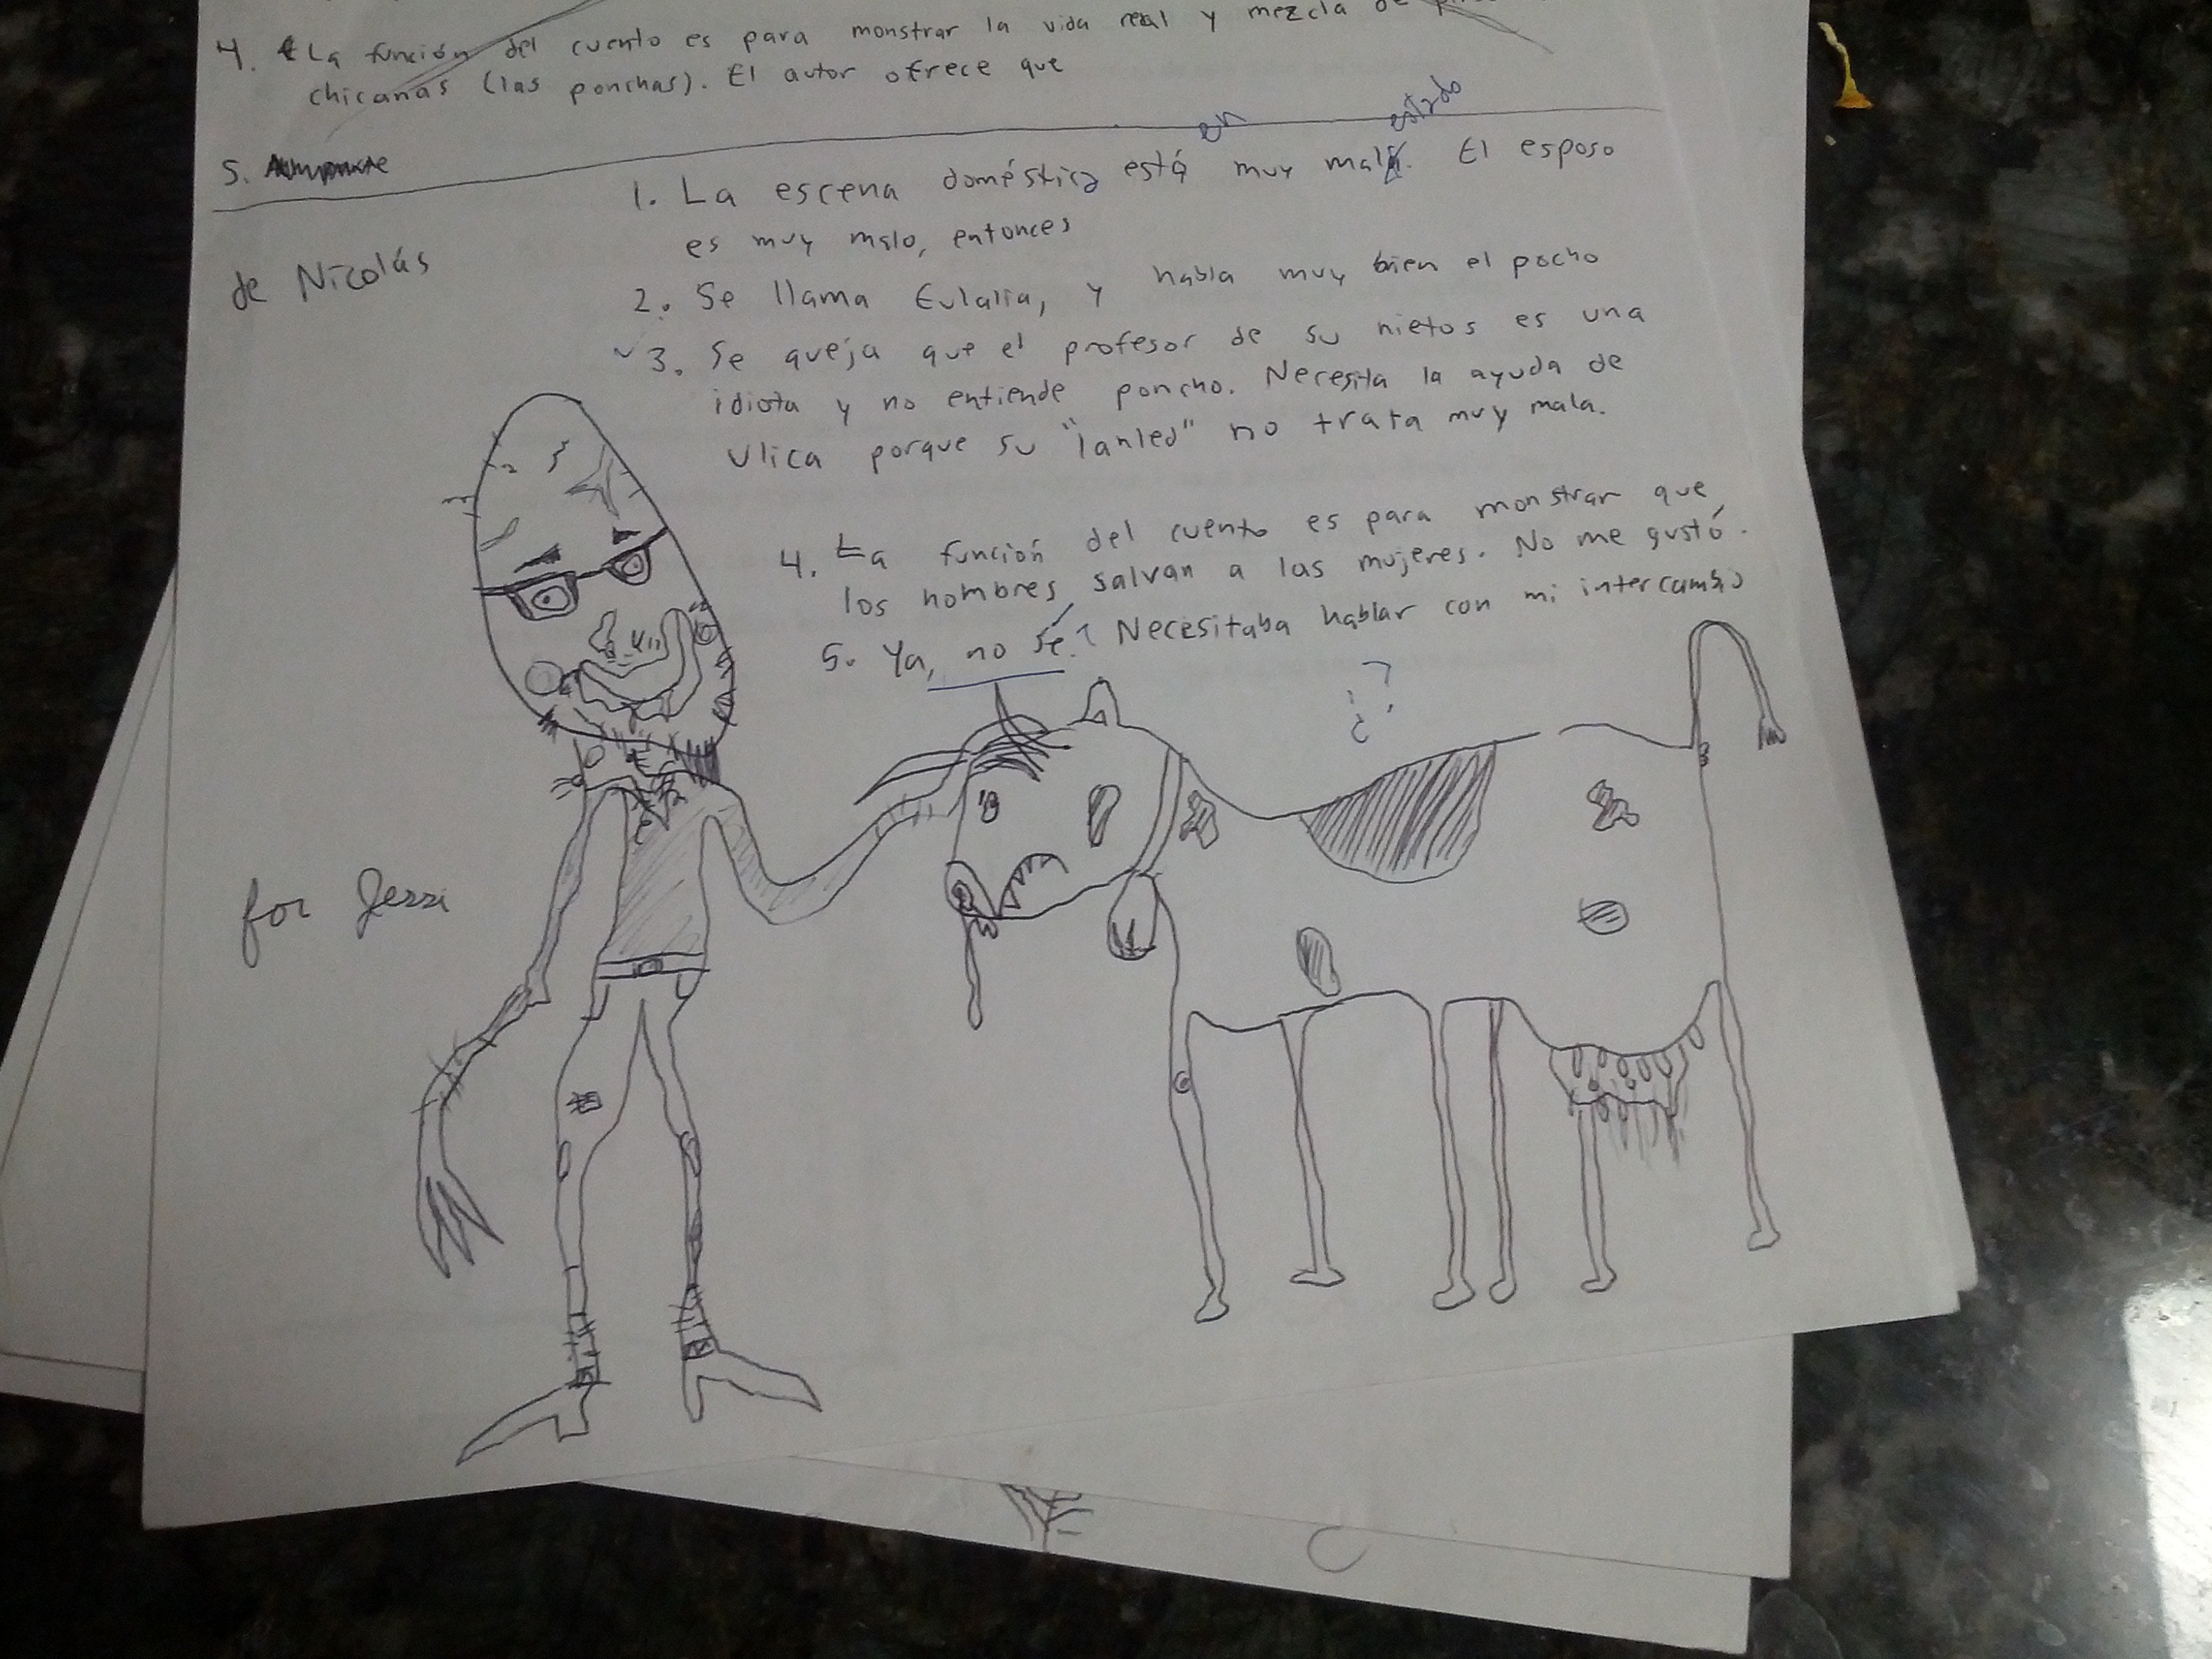 4. La función del cuento es para monstrar la vida real y mezcla de
chicanas (las ponchas). El autor ofrece que
5.
en estado
1. La escena doméstica está muy mal. El esposo
es muy malo, entonces
2. Se llama Eulalia, y habla muy bien el pocho
3. Se queja que el profesor de su nietos es una
idiota y no entiende poncho. Necesita la ayuda de
Ulica porque su "lanled" no trata muy mala.
4. La función del cuento es para monstrar que
los hombres salvan a las mujeres. No me gustó.
5. Ya, no sé? Necesitaba hablar con mi intercambio
¿?
de Nicolás
for Jessi